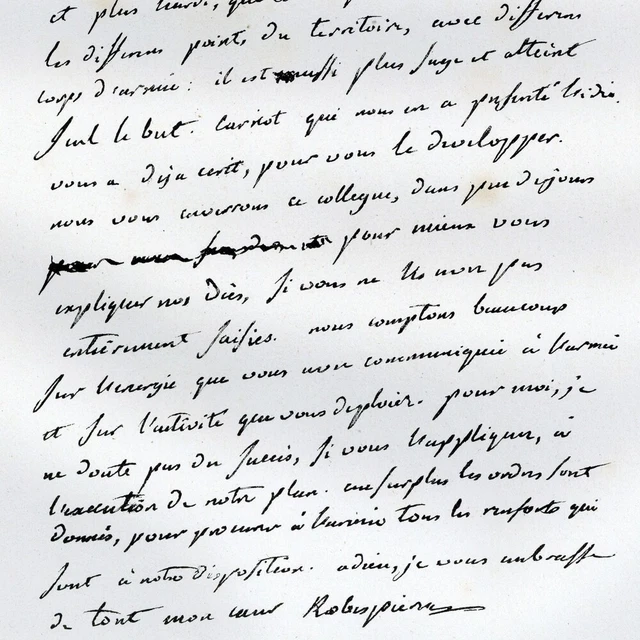 et plus hardi, que
les differens points du territoire, avec differens
corps d'armée : il est aussi plus sage et atteint
seul le but. Carnot qui nous en a présenté l'idée
vous a deja ecrit, pour vous le developper.
nous vous enverrons ce collegue, dans peu de jours
pour mieux vous
expliquer nos idées, si vous ne les avez pas
entièrement saisies. nous comptons beaucoup
sur l'energie que vous avez communiquée à l'armée
et sur l'activité que vous deploiez. pour moi, je
ne doute pas du succès, si vous l'appliquez, à
l'exécution de notre plan. au surplus les ordres sont
donnés, pour procurer à l'armée tous les renforts qui
sont à notre disposition. adieu, je vous embrasse
de tout mon cœur Robespierre